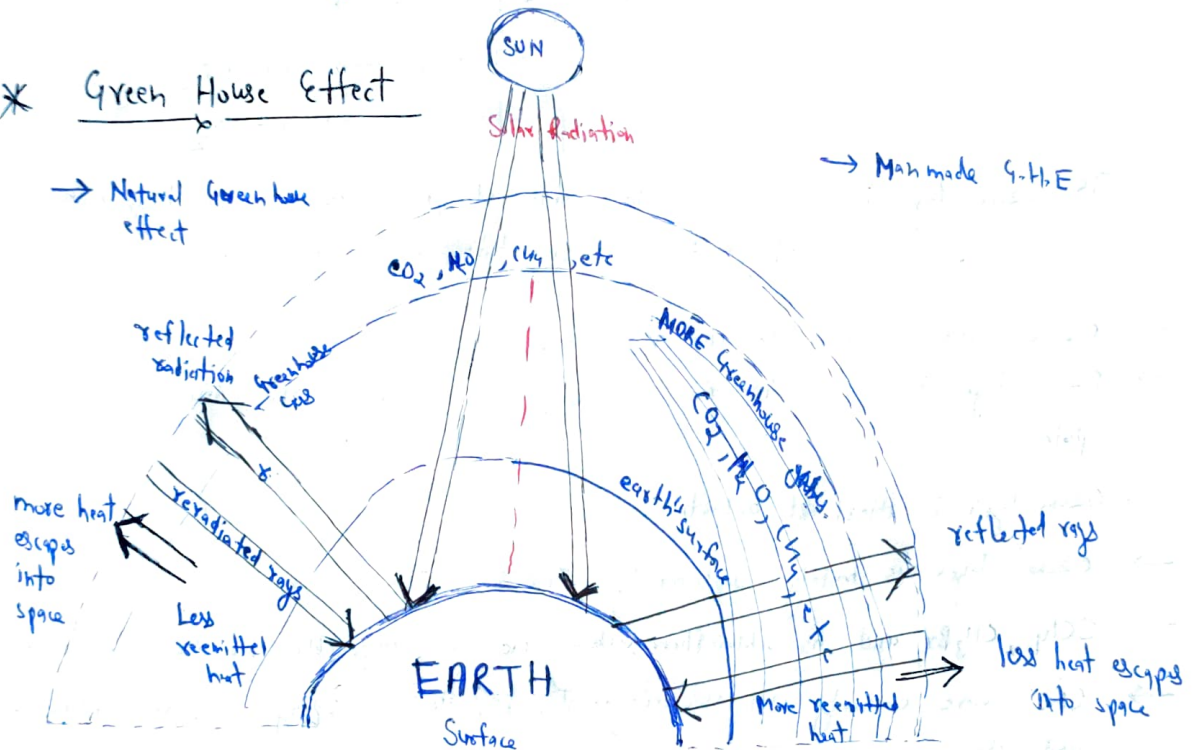 SUN
* Green House Effect
Solar Radiation
→ Natural Greenhouse
effect
→ Manmade G.H.E
CO2, N2O, CH4, etc
reflected
radiation
Greenhouse
gas
MORE Greenhouse gases.
CO2, N2O, CH4, etc
earth's
surface
more heat
escapes
into
space
reradiated rays
Less
reemitted
heat
reflected rays
less heat escapes
into space
More reemitted
heat
EARTH
Surface